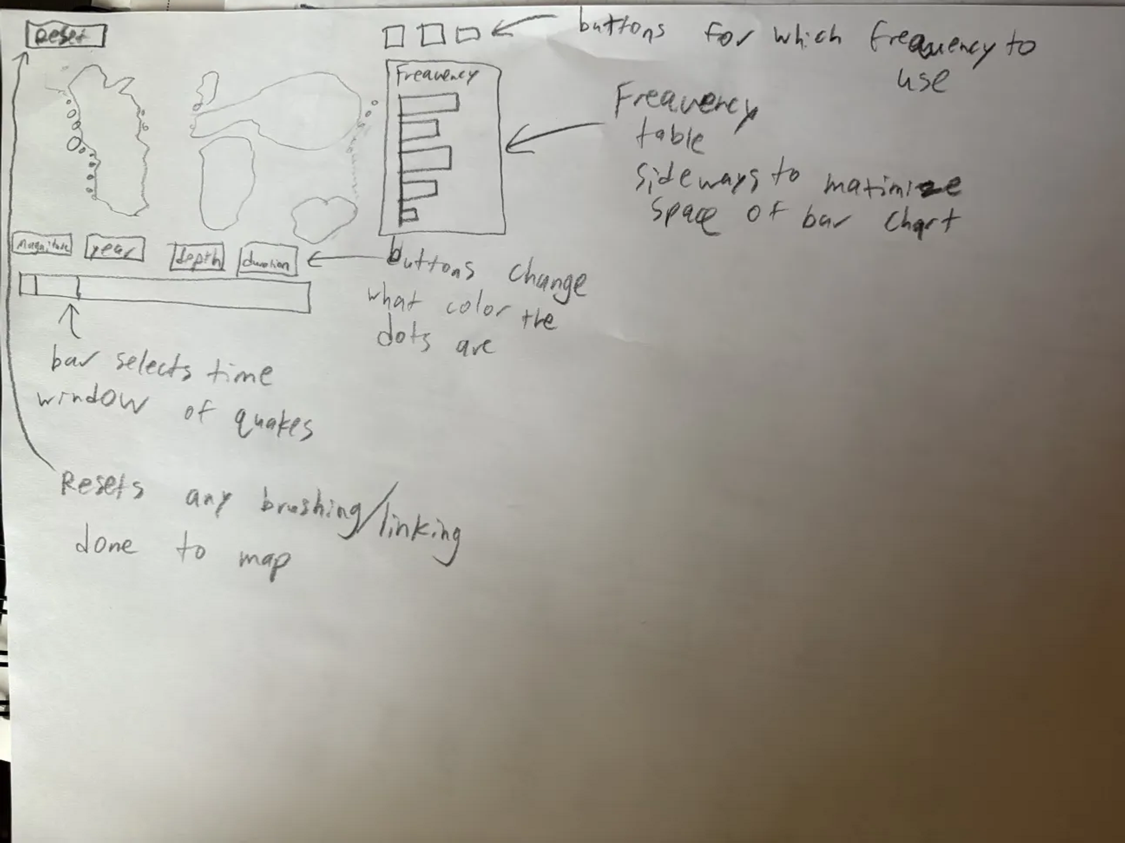 Reset
buttons for which frequency to
use
Frequency
Frequency
table
sideways to matimize
space of bar chart
Magnitude
year
depth
duration
buttons change
what color the
dots are
bar selects time
window of quakes
Resets any brushing/linking
done to map